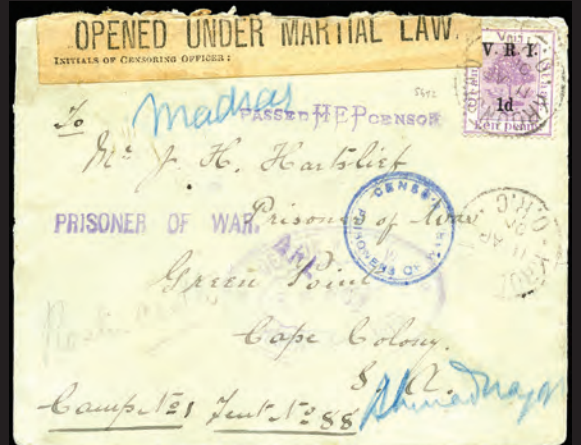 OPENED UNDER MARTIAL LAW.
INITIALS OF CENSORING OFFICER:
V. R. I.
1d
Een penny
5642
Madras
PASSED HEP CENSOR
To
Mr J. H. Hartslief
PRISONER OF WAR.
Prisoner of War
CENSOR
PRISONERS OF WAR
Green Point
Cape Colony.
S. A.
Camp No 1 Tent No 88
Ahmadnagar
11 AP
O.R.C.